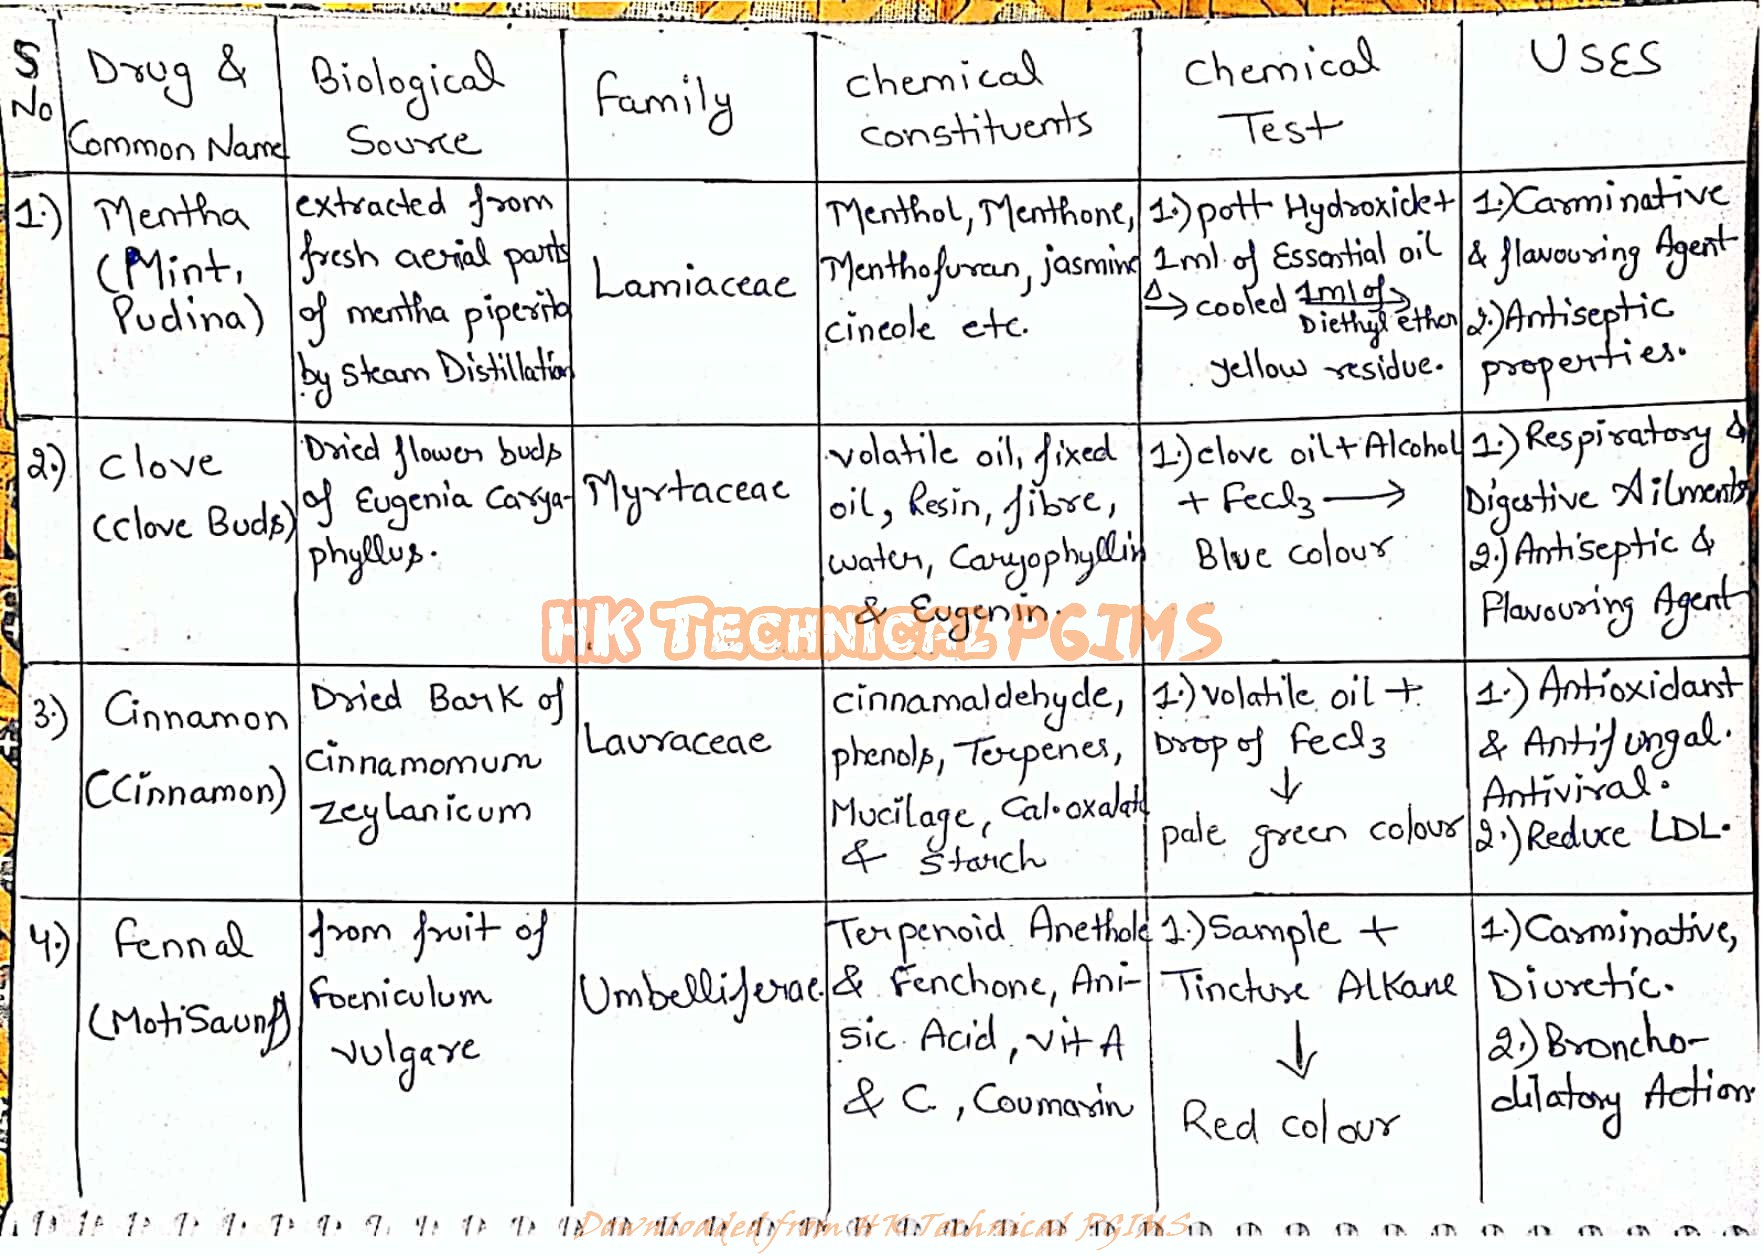 S
No
Drug &
Common Name
Biological
Source
Family
Chemical
constituents
Chemical
Test
USES
1.)
Mentha
(Mint,
Pudina)
extracted from
fresh aerial parts
of mentha piperita
by Steam Distillation
Lamiaceae
Menthol, Menthone,
Menthofuran, jasmine
cineole etc.
1.) pott Hydroxide +
1ml of Essential oil
Δ→ cooled 1ml of→
Diethyl ether
yellow residue.
1.) Carminative
& flavouring Agent
2.) Antiseptic
properties.
2.)
Clove
(Clove Buds)
Dried flower buds
of Eugenia Carya-
phyllus.
Myrtaceae
volatile oil, fixed
oil, Resin, fibre,
water, Caryophyllin
& Eugenin.
1.) clove oil + Alcohol
+ Fecl3 →
Blue colour
1.) Respiratory &
Digestive Ailments
2.) Antiseptic &
Flavouring Agent
3.)
Cinnamon
(Cinnamon)
Dried Bark of
cinnamomum
zeylanicum
Lauraceae
cinnamaldehyde,
phenols, Terpenes,
Mucilage, Cal. oxalate
& Starch
1.) volatile oil +
Drop of fecl3
↓
pale green colour
1.) Antioxidant
& Antifungal.
Antiviral.
2.) Reduce LDL.
4.)
Fennal
(MotiSaunf)
from fruit of
Foeniculum
vulgare
Umbelliferae
Terpenoid Anethole
& Fenchone, Ani-
sic Acid, vit A
& C, Coumarin
1.) Sample +
Tincture Alkane
↓
Red colour
1.) Carminative,
Diuretic.
2.) Broncho-
dilatory Action.
HK TECHNICAL PGIMS
Downloaded from HK Technical PGIMS